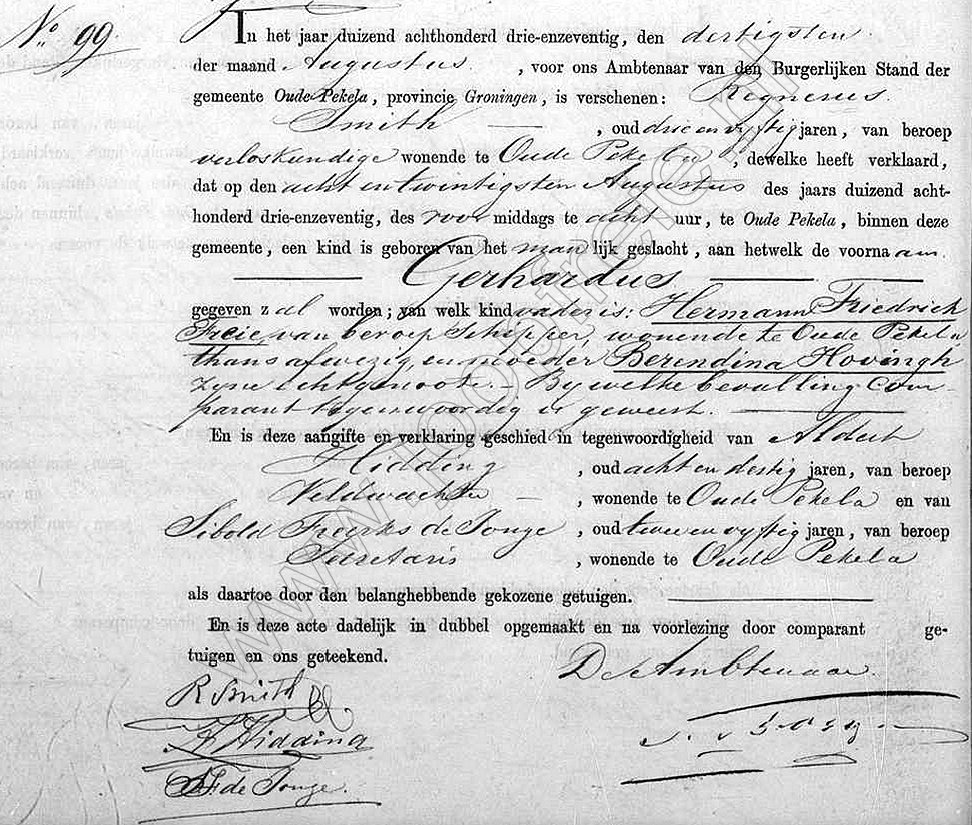 No. 99.
In het jaar duizend achthonderd drie-enzeventig, den dertigsten
der maand Augustus , voor ons Ambtenaar van den Burgerlijken Stand der
gemeente Oude Pekela, provincie Groningen, is verschenen: Regnerus
Smith — , oud drie en vijftig jaren, van beroep
verloskundige wonende te Oude Pekela , dewelke heeft verklaard,
dat op den acht en twintigsten Augustus des jaars duizend acht-
honderd drie-enzeventig, des voor middags te acht uur, te Oude Pekela, binnen deze
gemeente, een kind is geboren van het man lijk geslacht, aan hetwelk de voorna am
— Gerhardus —
gegeven z al worden; van welk kind vader is: Hermann Friedrich
Freie, van beroep Schipper, wonende te Oude Pekela
thans afwezig, en moeder Berendina Hovingh
zyne echtgenoote. — By welke bevalling com-
parant tegenwoordig is geweest. —
En is deze aangifte en verklaring geschied in tegenwoordigheid van Aldert
Hidding , oud acht en dertig jaren, van beroep
Veldwachter — , wonende te Oude Pekela en van
Sibold Franks de Jonge , oud twee en vyftig jaren, van beroep
Secretaris , wonende te Oude Pekela
als daartoe door den belanghebbende gekozene getuigen. —
En is deze acte dadelijk in dubbel opgemaakt en na voorlezing door comparant ge-
tuigen en ons geteekend.
De Ambtenaar
R Smith
A Hidding
SF de Jonge.